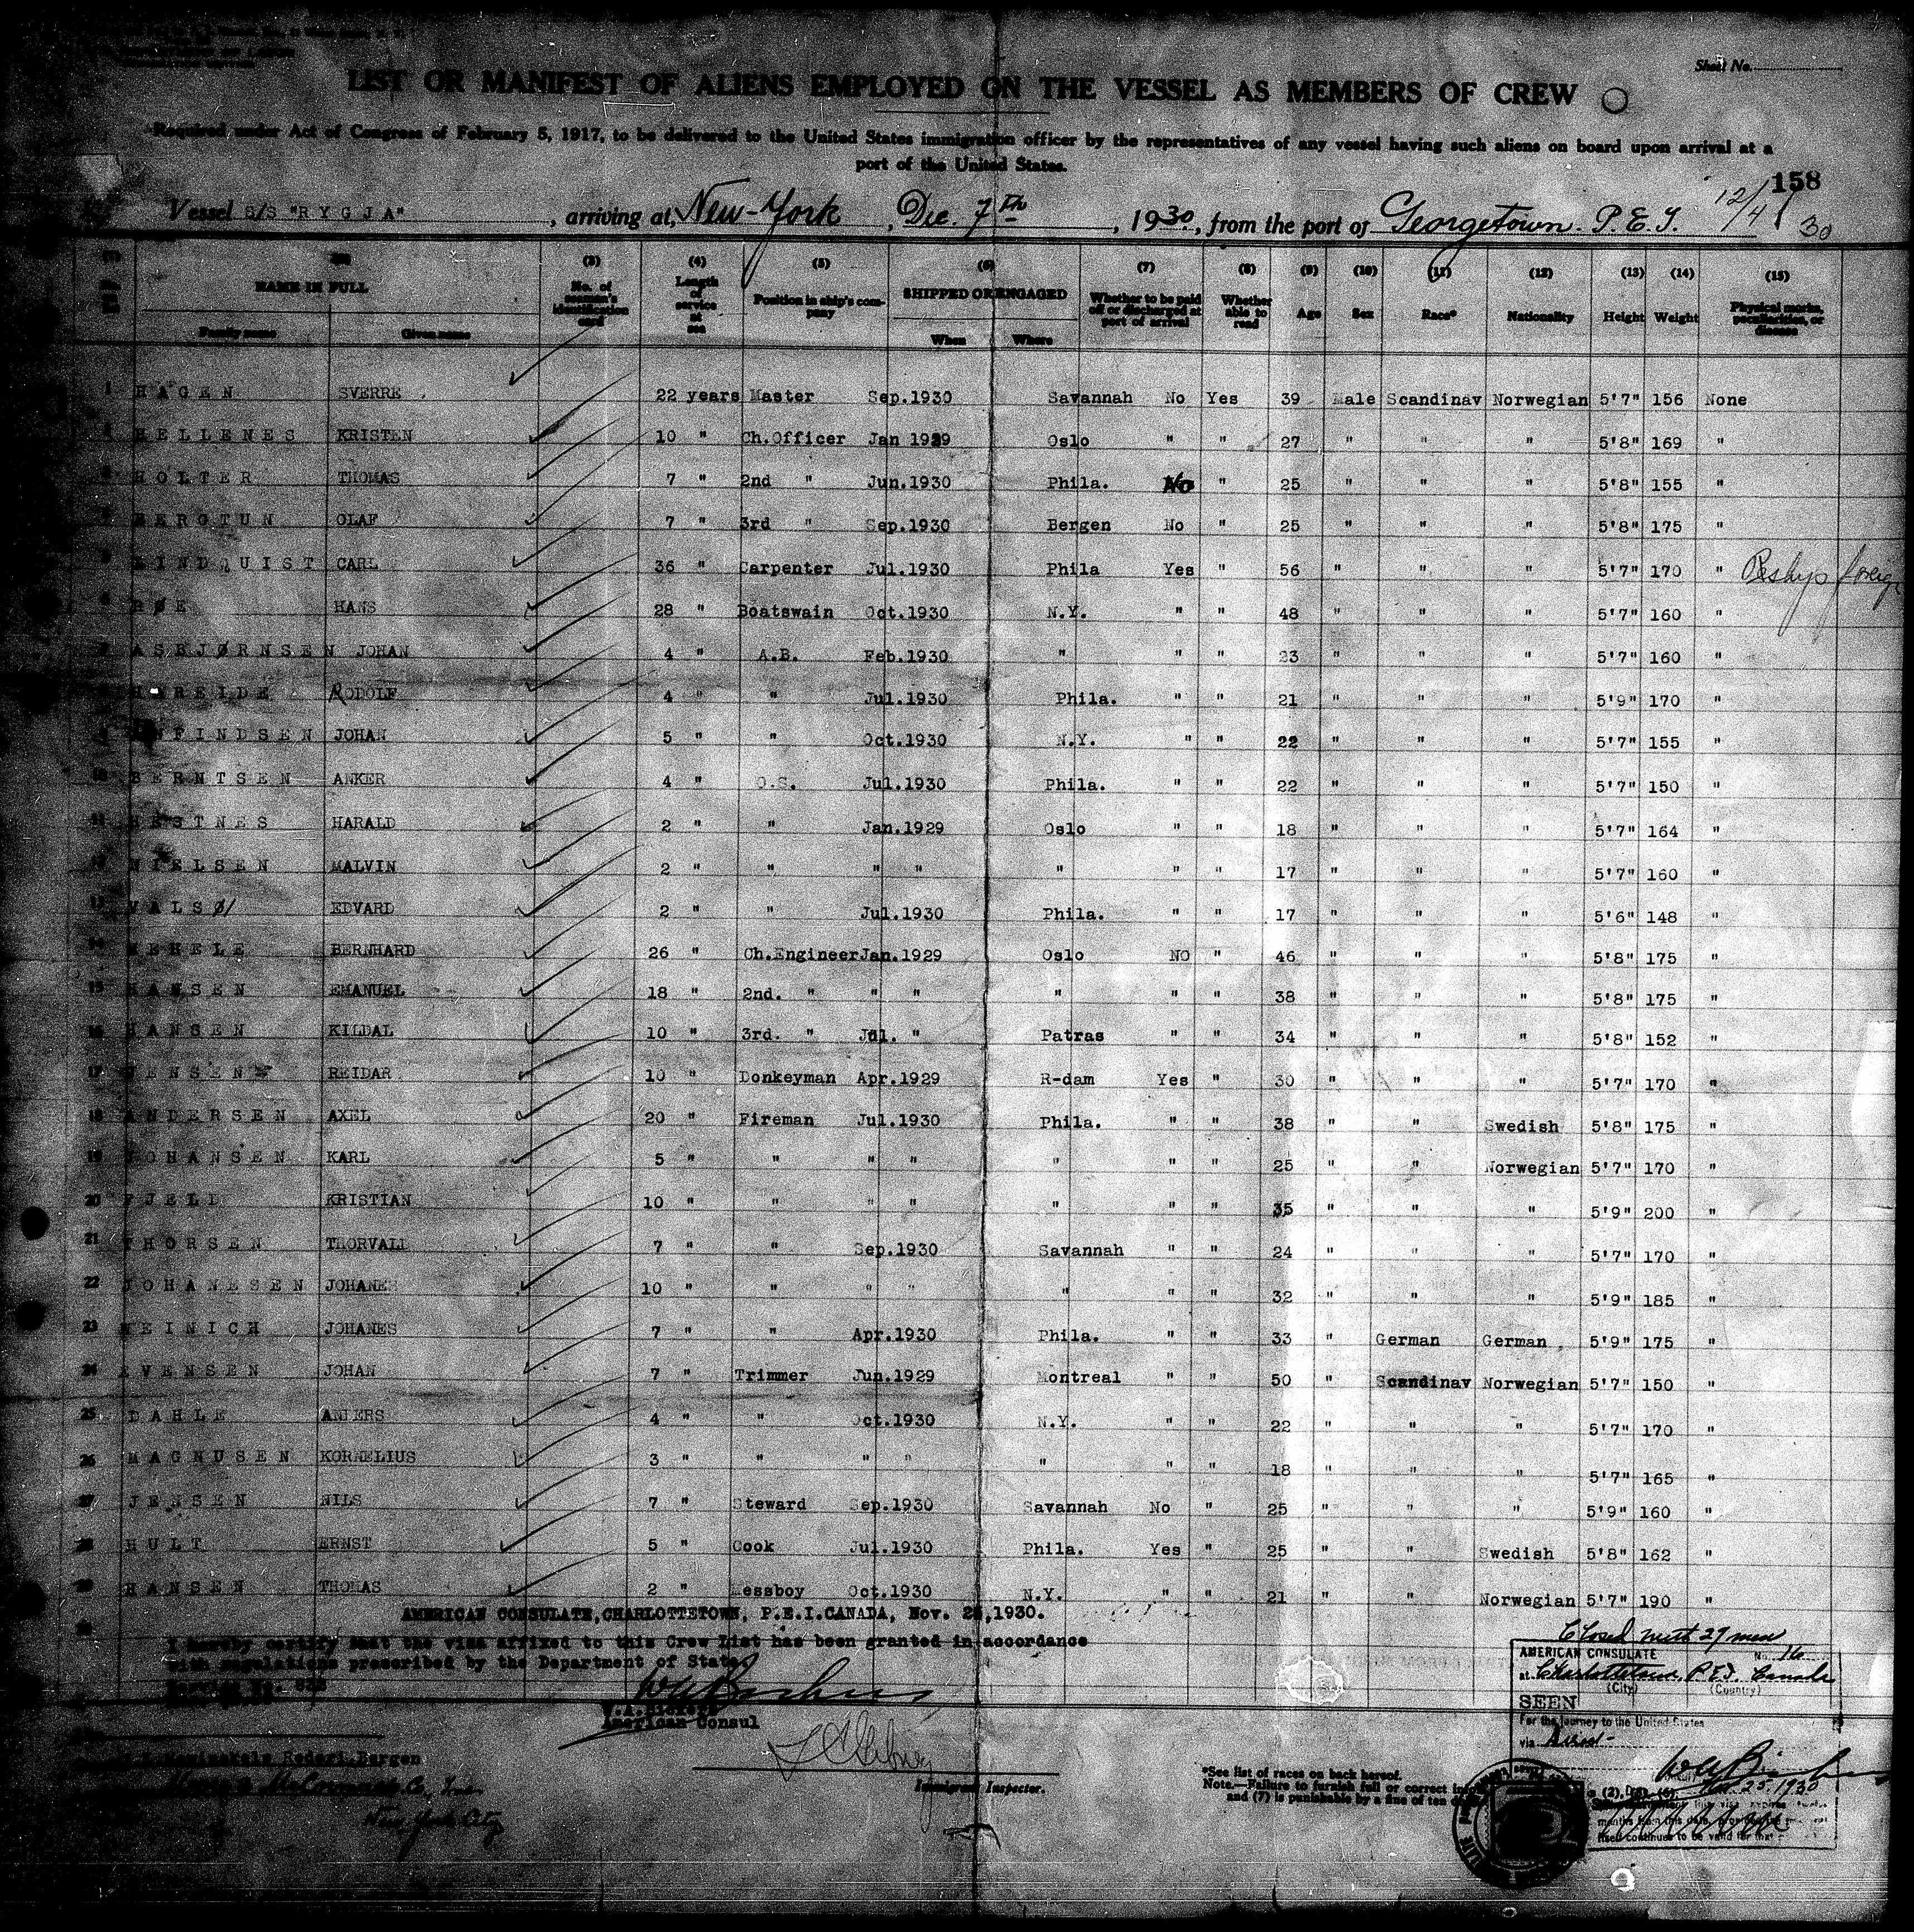 Sheet No.
LIST OR MANIFEST OF ALIENS EMPLOYED ON THE VESSEL AS MEMBERS OF CREW
Required under Act of Congress of February 5, 1917, to be delivered to the United States immigration officer by the representatives of any vessel having such aliens on board upon arrival at a
port of the United States.
158
Vessel S/S "RYGJA", arriving at New-York, Dec. 7th, 1930, from the port of Georgetown P.E.I. 12/4/30
(3) (4) (5) (6) (7) (8) (9) (10) (11) (12) (13) (14) (15)
NAME IN FULL No. of seaman's identification card Length of service at sea Position in ship's company SHIPPED OR ENGAGED Whether to be paid off or discharged at port of arrival Whether able to read Age Sex Race* Nationality Height Weight Physical marks, peculiarities, or disease
Family name Given name When Where
1 HAGEN SVERRE 22 years Master Sep.1930 Savannah No Yes 39 Male Scandinav Norwegian 5'7" 156 None
HELLENES KRISTEN 10 " Ch.Officer Jan 1929 Oslo " " 27 " " " 5'8" 169 "
HOLTER THOMAS 7 " 2nd " Jun.1930 Phila. No " 25 " " " 5'8" 155 "
BERGTUN OLAF 7 " 3rd " Sep.1930 Bergen No " 25 " " " 5'8" 175 "
LINDQUIST CARL 36 " Carpenter Jul.1930 Phila Yes " 56 " " " 5'7" 170 "
RØE HANS 28 " Boatswain Oct.1930 N.Y. " " 48 " " " 5'7" 160 "
ASBJØRNSEN JOHAN 4 " A.B. Feb.1930 " " " 23 " " " 5'7" 160 "
RODOLF 4 " " Jul.1930 Phila. " " 21 " " " 5'9" 170 "
JOHAN 5 " " Oct.1930 N.Y. " " 22 " " " 5'7" 155 "
10 BERNTSEN ANKER 4 " O.S. Jul.1930 Phila. " " 22 " " " 5'7" 150 "
11 HESTNES HARALD 2 " " Jan.1929 Oslo " " 18 " " " 5'7" 164 "
12 NIELSEN MALVIN 2 " " " " " " " 17 " " " 5'7" 160 "
13 VALSØ EDVARD 2 " " Jul.1930 Phila. " " 17 " " " 5'6" 148 "
14 BERNHARD 26 " Ch.Engineer Jan.1929 Oslo NO " 46 " " " 5'8" 175 "
15 HANSEN EMANUEL 18 " 2nd. " " " " " " 38 " " " 5'8" 175 "
16 HANSEN KILDAL 10 " 3rd. " Jul. " Patras " " 34 " " " 5'8" 152 "
17 JENSEN REIDAR 10 " Donkeyman Apr.1929 R-dam Yes " 30 " " " 5'7" 170 "
18 ANDERSEN AXEL 20 " Fireman Jul.1930 Phila. " " 38 " " Swedish 5'8" 175 "
19 JOHANSEN KARL 5 " " " " " " " 25 " " Norwegian 5'7" 170 "
20 FJELL KRISTIAN 10 " " " " " " " 35 " " " 5'9" 200 "
21 THORSEN THORVALD 7 " " Sep.1930 Savannah " " 24 " " " 5'7" 170 "
22 JOHANESEN JOHANES 10 " " " " " " " 32 " " " 5'9" 185 "
23 JOHANES 7 " " Apr.1930 Phila. " " 33 " German German 5'9" 175 "
24 EVENSEN JOHAN 7 " Trimmer Jun.1929 Montreal " " 50 " Scandinav Norwegian 5'7" 150 "
25 DAHLE ANDERS 4 " " Oct.1930 N.Y. " " 22 " " " 5'7" 170 "
26 MAGNUSEN KORNELIUS 3 " " " " " " " 18 " " " 5'7" 165 "
27 JENSEN NILS 7 " Steward Sep.1930 Savannah No " 25 " " " 5'9" 160 "
28 HULT ERNST 5 " Cook Jul.1930 Phila. Yes " 25 " " Swedish 5'8" 162 "
29 HANSEN THOMAS 2 " Messboy Oct.1930 N.Y. " " 21 " " Norwegian 5'7" 190 "
AMERICAN CONSULATE, CHARLOTTETOWN, P.E.I. CANADA, Nov. 25, 1930.
I hereby certify that the visa affixed to this Crew List has been granted in accordance
with regulations prescribed by the Department of State.
American Consul
Closed with 29 men
AMERICAN CONSULATE No. 16
at Charlottetown, P.E.I. Canada
(City) (Country)
SEEN
For the journey to the United States
via
Nov 25, 1930
Rederi Bergen
New York City
Immigrant Inspector.
*See list of races on back hereof.
Note.—Failure to furnish full or correct
and (7) is punishable by a fine of ten